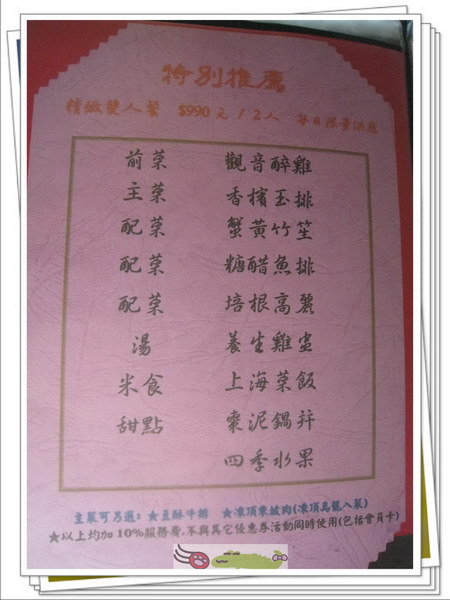 特別推薦
精緻雙人餐 $990元/2人 每日限量供應
前菜 觀音醉雞
主菜 香檳玉排
配菜 蟹黃竹笙
配菜 糖醋魚排
配菜 培根高麗
湯 養生雞盅
米食 上海菜飯
甜點 棗泥鍋餅
四季水果
主菜可另選:★豆酥牛排 ★凍頂東坡肉(凍頂烏龍入菜)
★以上均加10%服務費,不與其它優惠券活動同時使用(包括會員卡)